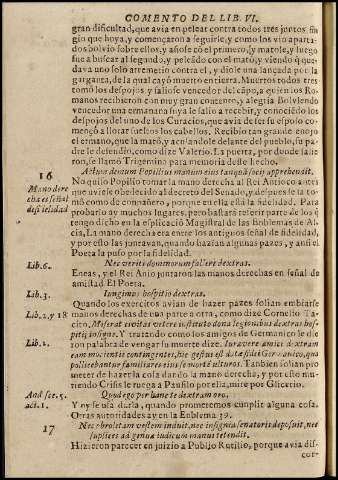 COMENTO DEL LIB. VI.
gran dificultad, que avia en pelear contra todos tres juntos fin
gio que huya, y començaron a seguirle, y como los vio aparta-
dos bolvio sobre ellos, y asiose cō el primero, y matole, y luego
fue a buscar al segundo, y peleādo con el matò, y viendo q̃ que-
dava uno solo arremetio contra el, y diole una lançada por la
garganta, de la qual cayò muerto en tierra. Muertos todos tres
tomò los despojos, y saliose vencedor del cāpo, a quien los Ro-
manos recibieron con muy gran contento, y alegria Bolviendo
vencedor una ermana suya le salio a recebir, y conociēdo los
despojos del uno de los Curacios, que avia de ser su esposo co-
mençò a llorar sueltos los cabellos. Recibio tan grande enojo
el ermano, que la matò, y acusandole delante del pueblo, su pa-
dre le defendiò, como dize Valerio. La puerta, por donde salie-
ron, se llamò Trigemino para memoria deste hecho.
16
Actum demum Popilius manum eius tanquā socij apprehendit.
Mano dere
cha es señal
No quiso Popilio tomar la mano derecha al Rei Antioco antes
que aviese obedecido al decreto del Senado, y despues se la to-
mò como de compañero, porque en ella està la fidelidad. Para
probarlo ay muchos lugares, pero bastarà referir parte de los q̃
tengo dicho en la esplicaciō Magistral de las Enblemas de Al-
cia, La mano derecha era entre los antiguos señal de fidelidad,
y por esto las juntavan, quando hazian algunas pazes, y ansi el
Poeta la puso por la fidelidad.
Lib. 6.
Nec foveris dominorum fallere dextras.
Eneas, y el Rei Anio juntaron las manos derechas en señal de
amistad. El Poeta.
Lib. 3.
Iungimus hospitio dextras.
Quando los exercitos avian de hazer pazes solian embiarse
Lib. 2. y 18
manos derechas de una parte a otra, como dize Cornelio Ta-
cito, Miserat civitas vetere instituto dona legionibus dextras hos-
pitij insigne. Y tratando como los amigos de Germanico le die
Lib. 2.
ron palabra de vengar su muerte dize. Iuravere amici dextram
Tanbien solian pro
meter de hazer la cosa dando la mano derecha, y por esto mu-
riendo Crisis le ruega a Panfilo por ella, mire por Glicerio.
And. sce. 5.
act. 1.
Quod ego per hanc te dextram oro.
Y ny se usa darla, quando prometemos cumplir alguna cosa.
Otras autoridades ay en la Enblema 39.
17
Nec obsoletam vestem induit, nec insignia senatoris deposuit, nec
supplices ad genua iudicum manus tetendit.
Hizieron parecer en juizio a Publio Rutilio, porque avia dis-